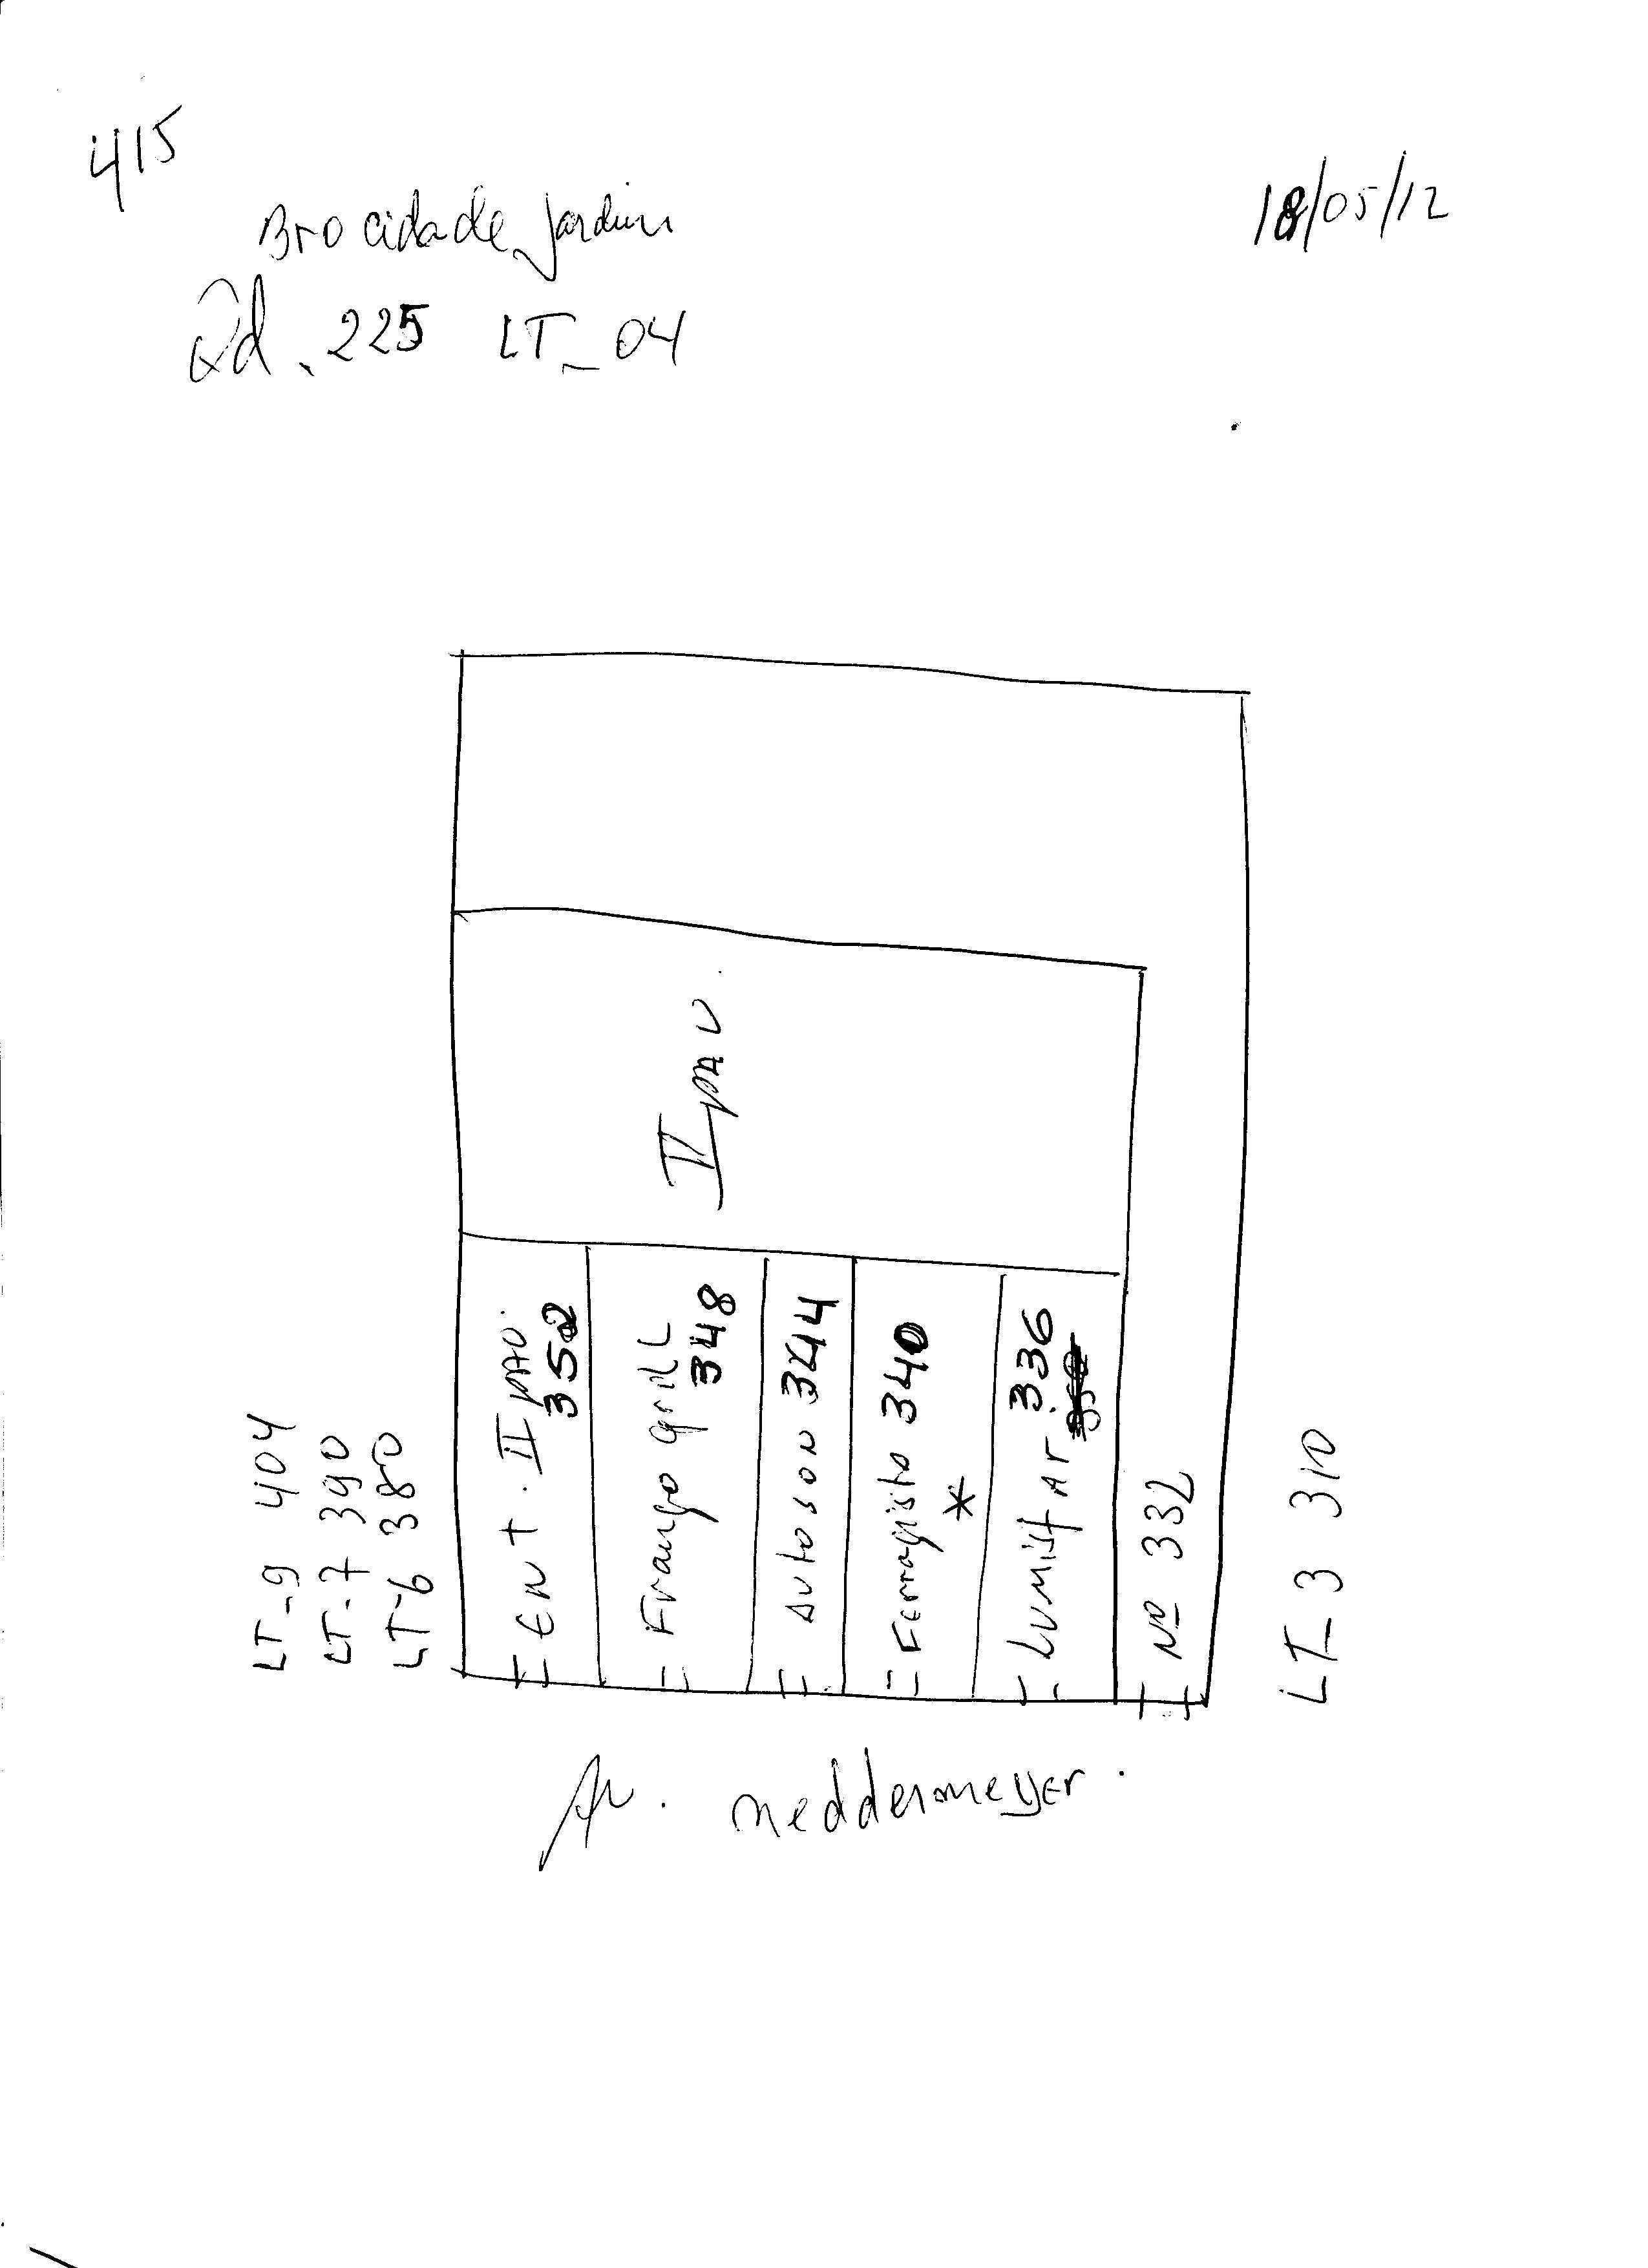 415
18/05/12
Bro cidade Jardim
Qd. 225 LT_04
II PAV.
Ent. II PAV.
352
Frango grill
348
Auto son 344
Ferragista 340
*
Lumistar 336
Nº 332
LT_9 404
LT-7 390
LT-6 380
LT_3 310
Av. neddermeyer.